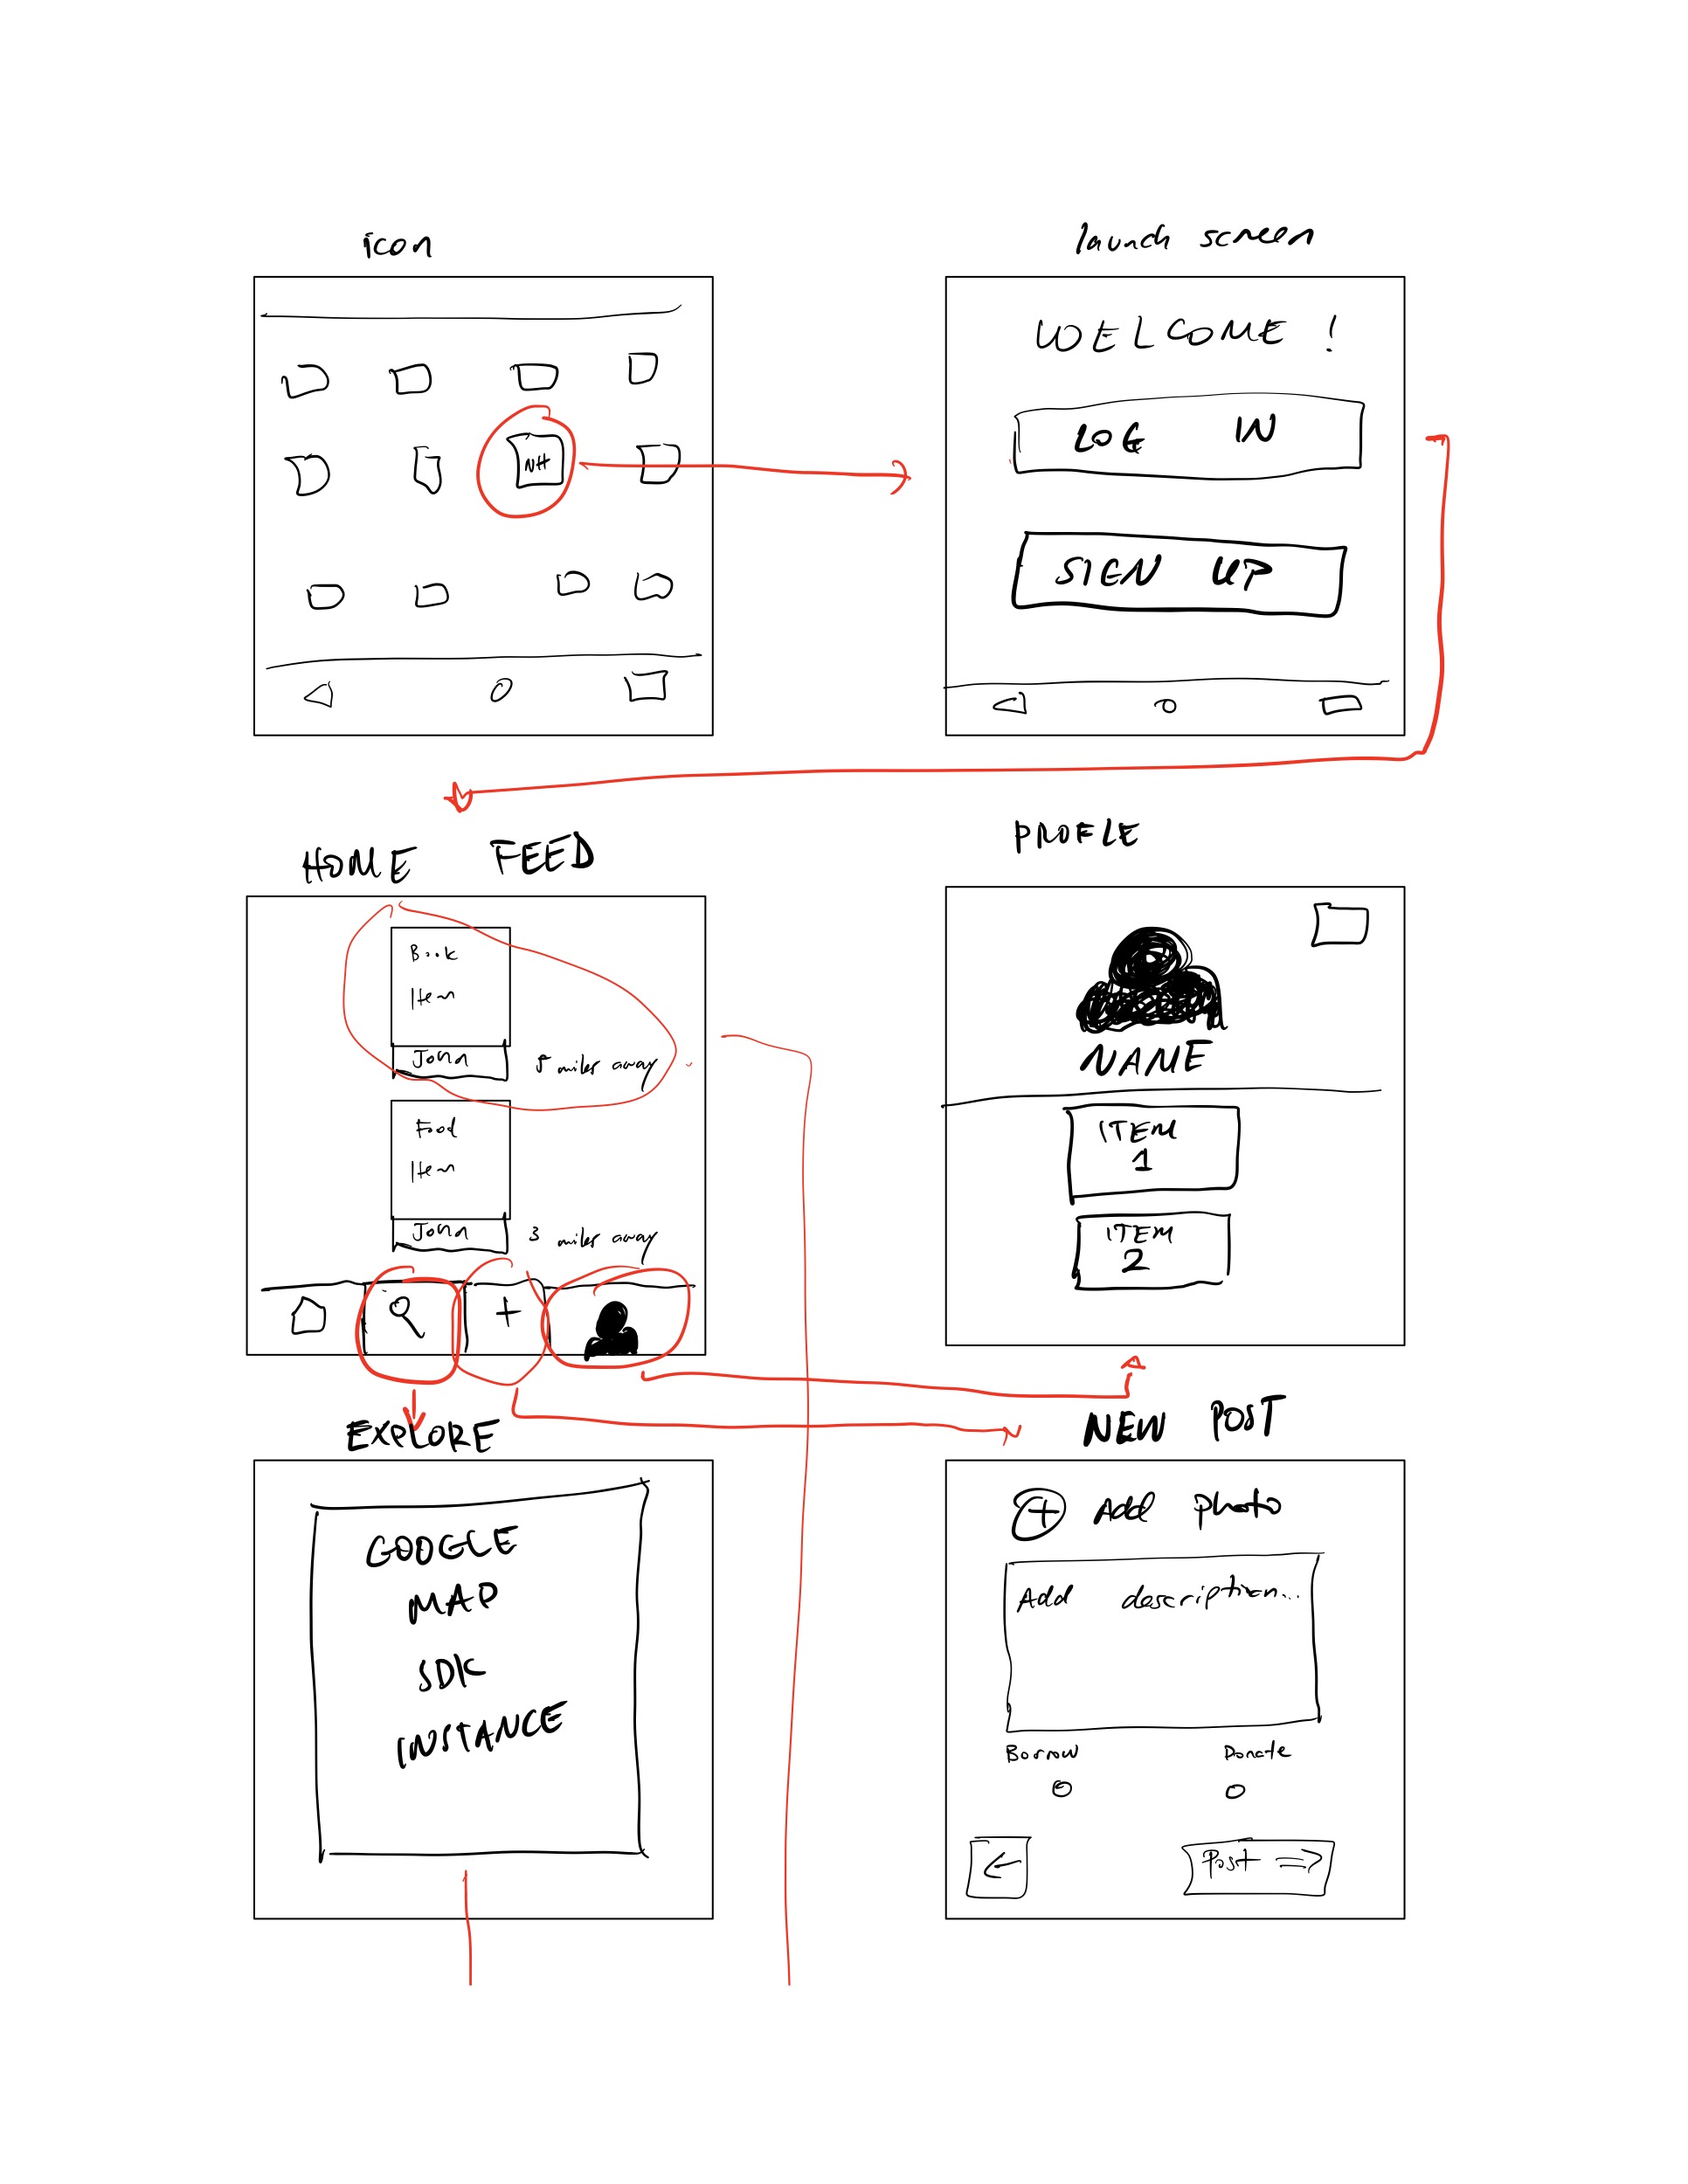 icon
launch screen
NH
WELCOME !
LOG IN
SIGN UP
HOME FEED
PROFLE
Book
Item
John
5 miles away
Food
Item
John
3 miles away
NAME
ITEM
1
ITEM
2
EXPLORE
NEW POST
GOOGLE
MAP
SDK
INSTANCE
Add photo
Add description...
Borrow Donate
Post